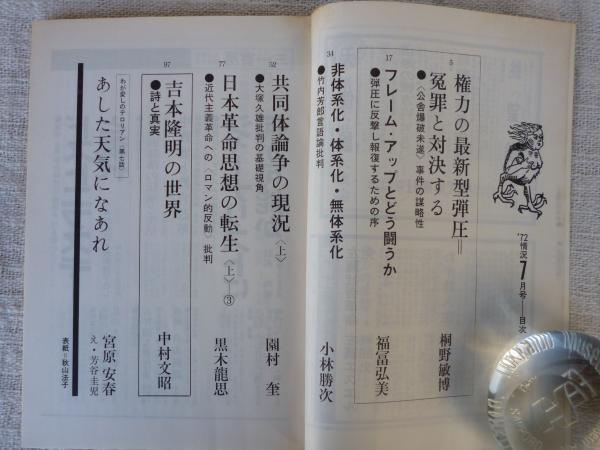 '72情況7月号——目次
5
権力の最新型弾圧＝
冤罪と対決する
●〈公舎爆破未遂〉事件の謀略性
桐野敏博
17
フレーム・アップとどう闘うか
●弾圧に反撃し報復するための序
福冨弘美
34
非体系化・体系化・無体系化
●竹内芳郎言語論批判
小林勝次
52
共同体論争の現況〈上〉
●大塚久雄批判の基礎視角
園村 奎
77
日本革命思想の転生〈上〉—③
●近代主義革命への〈ロマン的反動〉批判
黒木龍思
97
吉本隆明の世界
●詩と真実
中村文昭
わが愛しのテロリアン〈第七話〉
あした天気になあれ
宮原安春
え・芳谷圭児
表紙＝秋山法子